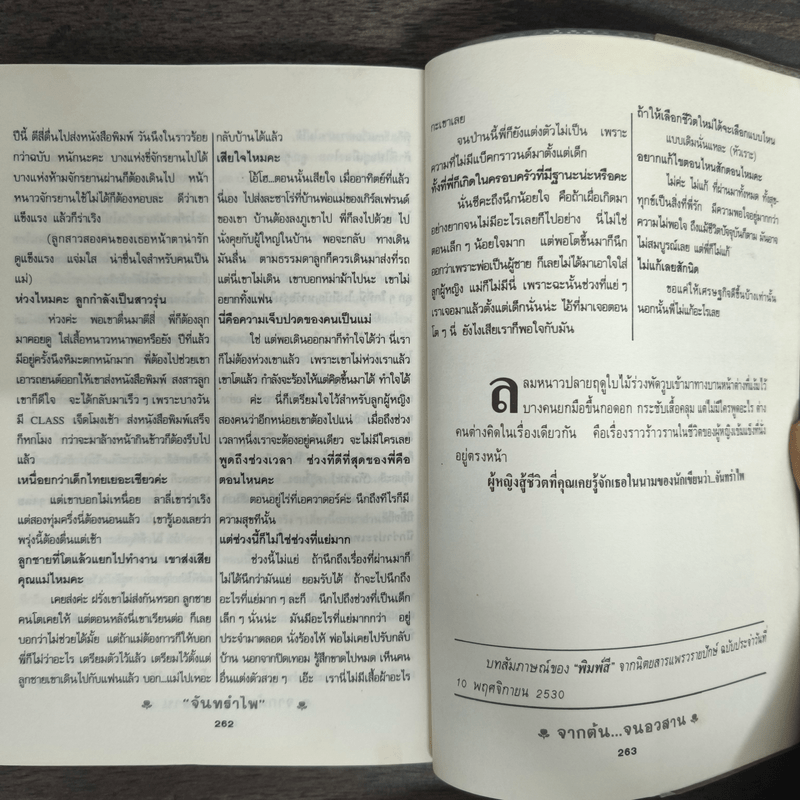 ปีนี้ ตีสี่ตื่นไปส่งหนังสือพิมพ์ วันนึงในราวร้อย
กว่าฉบับ หนักนะคะ บางแห่งขี่จักรยานไปได้
บางแห่งห้ามจักรยานผ่านก็ต้องเดินไป หน้า
หนาวจักรยานใช้ไม่ได้ก็ต้องหอบล่ะ ดีว่าเขา
แข็งแรง แล้วก็ร่าเริง
(ลูกสาวสองคนของเธอหน้าตาน่ารัก
ดูแข็งแรง แจ่มใส น่าชื่นใจสำหรับคนเป็น
แม่)
ห่วงไหมคะ ลูกกำลังเป็นสาวรุ่น
ห่วงค่ะ พอเขาตื่นมาตีสี่ พี่ก็ต้องลุก
มาคอยดู ใส่เสื้อหนาวหนาพอหรือยัง ปีที่แล้ว
มีอยู่ครั้งนึงหิมะตกหนักมาก พี่ต้องไปช่วยเขา
เอารถยนต์ออกให้เขาส่งหนังสือพิมพ์ สงสารลูก
เขาก็ดีใจ จะได้กลับมาเร็วๆ เพราะบางวัน
มี CLASS เจ็ดโมงเช้า ส่งหนังสือพิมพ์เสร็จ
ก็หกโมง กว่าจะมาล้างหน้ากินข้าวก็ต้องรีบไป
แล้ว
เหนื่อยกว่าเด็กไทยเยอะเชียวค่ะ
แต่เขาบอกไม่เหนื่อย ลาลี่เขาร่าเริง
แต่สองทุ่มครึ่งนี่ต้องนอนแล้ว เขารู้เองเลยว่า
พรุ่งนี้ต้องตื่นแต่เช้า
ลูกชายที่โตแล้วแยกไปทำงาน เขาส่งเสีย
คุณแม่ไหมคะ
เคยส่งค่ะ ฝรั่งเขาไม่ส่งกันหรอก ลูกชาย
คนโตเคยให้ แต่ตอนหลังนี่เขาเรียนต่อ ก็เลย
บอกว่าไม่ช่วยได้มั้ย แต่ถ้าแม่ต้องการก็ให้บอก
พี่ก็ไม่ว่าอะไร เตรียมตัวไว้แล้ว เตรียมไว้ตั้งแต่
ลูกชายเขาเดินไปกับแฟนแล้ว บอก...แม่ไปเหอะ
กลับบ้านได้แล้ว
เสียใจไหมคะ
โอ้โฮ...ตอนนั้นเสียใจ เมื่ออาทิตย์ที่แล้ว
นี่เอง ไปส่งละซาโร่ที่บ้านพ่อแม่ของเกิร์ลเฟรนด์
ของเขา บ้านต้องลงภูเขาไป พี่ก็ลงไปด้วย ไป
นั่งคุยกับผู้ใหญ่ในบ้าน พอจะกลับ ทางเดิน
มันลื่น ตามธรรมดาลูกก็ควรเดินมาส่งที่รถ
แต่นี่เขาไม่เดิน เขาบอกหม่าม้าไปนะ เขาไม่
อยากทิ้งแฟน
นี่คือความเจ็บปวดของคนเป็นแม่
ใช่ แต่พอเดินออกมาก็ทำใจได้ว่า นี่เรา
ก็ไม่ต้องห่วงเขาแล้ว เพราะเขาไม่ห่วงเราแล้ว
เขาโตแล้ว กำลังจะร้องไห้แต่คิดขึ้นมาได้ ทำใจได้
ค่ะ นี่ก็เตรียมใจไว้สำหรับลูกผู้หญิง
สองคนว่าอีกหน่อยเขาต้องไปแน่ เมื่อถึงช่วง
เวลาหนึ่งเราจะต้องอยู่คนเดียว จะไม่มีใครเลย
พูดถึงช่วงเวลา ช่วงที่ดีที่สุดของพี่คือ
ตอนไหนคะ
ตอนอยู่ไร่ที่เอควาดอร์ค่ะ นึกถึงทีไรก็มี
ความสุขทีนั้น
แต่ช่วงนี้ก็ไม่ใช่ช่วงที่แย่มาก
ช่วงนี้ไม่แย่ ถ้านึกถึงเรื่องที่ผ่านมาก็
ไม่ได้นึกว่ามันแย่ ยอมรับได้ ถ้าจะไปนึกถึง
อะไรที่แย่มากๆ ละก็ นึกไปถึงช่วงที่เป็นเด็ก
เล็กๆ นั่นน่ะ มันมีอะไรที่แย่มากกว่า อยู่
ประจำมาตลอด นั่งร้องไห้ พ่อไม่เคยไปรับกลับ
บ้าน นอกจากปิดเทอม รู้สึกขาดไปหมด เห็นคน
อื่นแต่งตัวสวยๆ เอ๊ะ เรานี่ไม่มีเสื้อผ้าอะไร
"จันทรำไพ"
262
กะเขาเลย
จนป่านนี้พี่ก็ยังแต่งตัวไม่เป็น เพราะ
ความที่ไม่มีแบ็คกราวนด์มาตั้งแต่เด็ก
ทั้งที่พี่ก็เกิดในครอบครัวที่มีฐานะน่ะหรือคะ
นั่นซีคะถึงนึกน้อยใจ คือถ้าเผื่อเกิดมา
อย่างยากจนไม่มีอะไรเลยก็ไปอย่าง นี่ไม่ใช่
ตอนเล็กๆ น้อยใจมาก แต่พอโตขึ้นมาก็นึก
ออกว่าเพราะพ่อเป็นผู้ชาย ก็เลยไม่ได้มาเอาใจใส่
ลูกผู้หญิง แม่ก็ไม่มีนี่ เพราะฉะนั้นช่วงที่แย่ๆ
เราเจอมาแล้วตั้งแต่เด็กนั่นน่ะ ไอ้ที่มาเจอตอน
โตๆ นี่ ยังไงเสียเราก็พอใจกับมัน
ถ้าให้เลือกชีวิตใหม่ได้จะเลือกแบบไหน
แบบเดิมนั่นแหละ (หัวเราะ)
อยากแก้ไขตอนไหนสักตอนไหมคะ
ไม่ค่ะ ไม่แก้ ที่ผ่านมาทั้งหมด ทั้งสุข-
ทุกข์เป็นสิ่งที่พี่รัก มีความพอใจอยู่มากกว่า
ความไม่พอใจ ถึงแม้ชีวิตปัจจุบันก็ตาม มันอาจ
ไม่สมบูรณ์เลย แต่พี่ก็ไม่แก้
ไม่แก้เลยสักนิด
ขอแค่ให้เศรษฐกิจดีขึ้นบ้างเท่านั้น
นอกนั้นพี่ไม่แก้อะไรเลย
ลมหนาวปลายฤดูใบไม้ร่วงพัดวูบเข้ามาทางบานหน้าต่างที่แง้มไว้
บางคนยกมือขึ้นกอดอก กระชับเสื้อคลุม แต่ไม่มีใครพูดอะไร ต่าง
คนต่างคิดในเรื่องเดียวกัน คือเรื่องราวร้าวรานในชีวิตของผู้หญิงเข้มแข็งที่นั่ง
อยู่ตรงหน้า
ผู้หญิงสู้ชีวิตที่คุณเคยรู้จักเธอในนามของนักเขียนว่า..จันทรำไพ
บทสัมภาษณ์ของ "พิมพ์สี" จากนิตยสารแพรวรายปักษ์ ฉบับประจำวันที่
10 พฤศจิกายน 2530
จากต้น...จนอวสาน
263